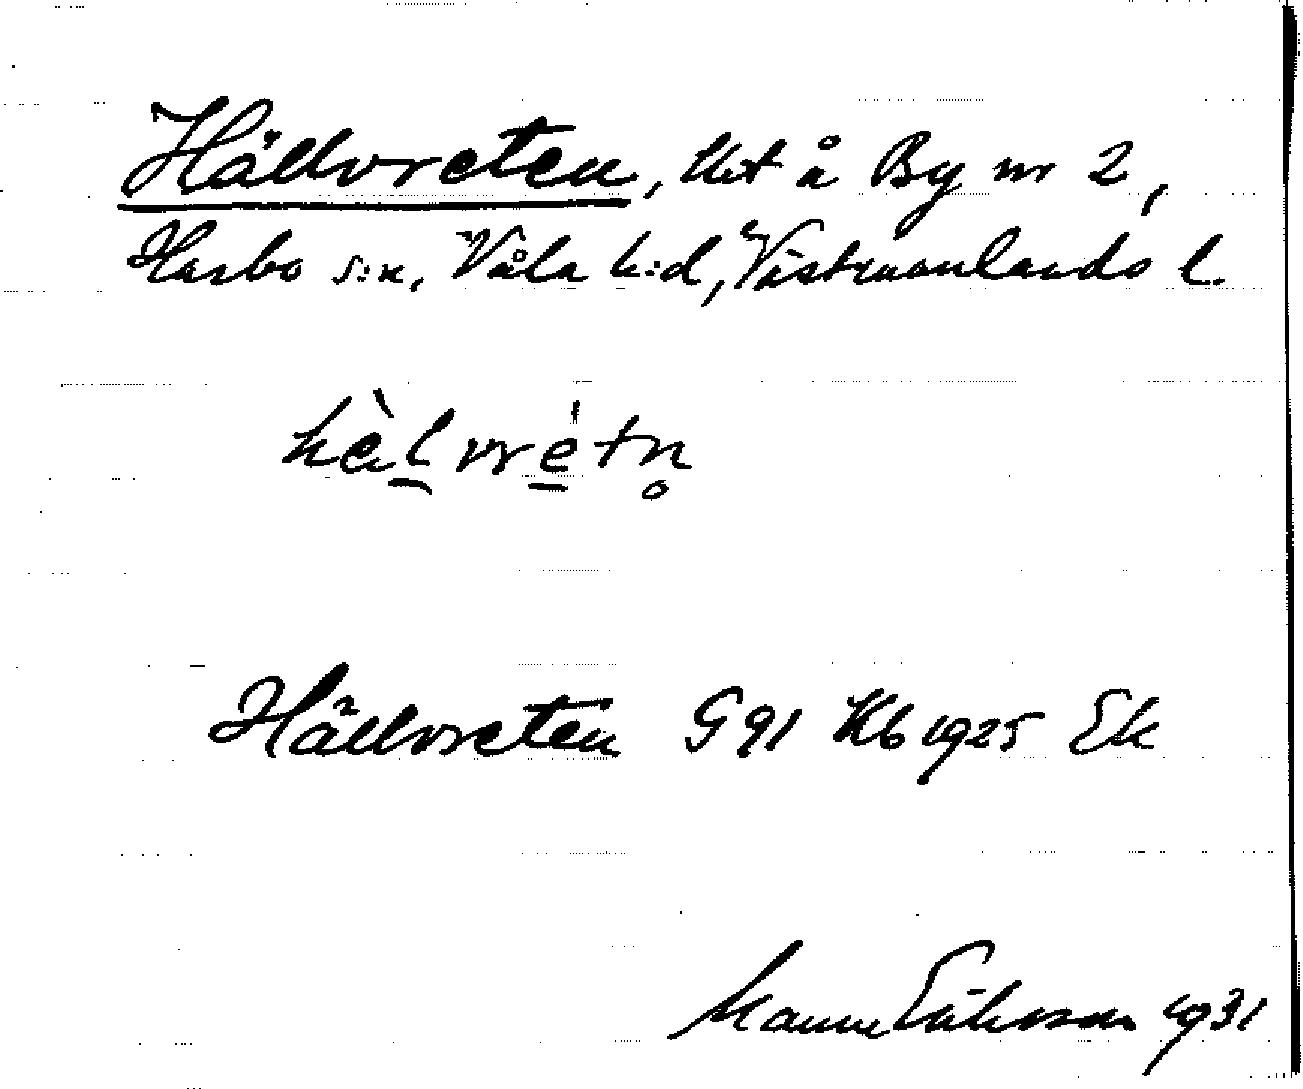 Hällvreten, lht å By nr 2,
Harbo s:n, Våla h:d, Västmanlands l.
hä̀lvrétn̥
Hällvreten G91 Kb 1925 Ek
Manne Eriksson 1931